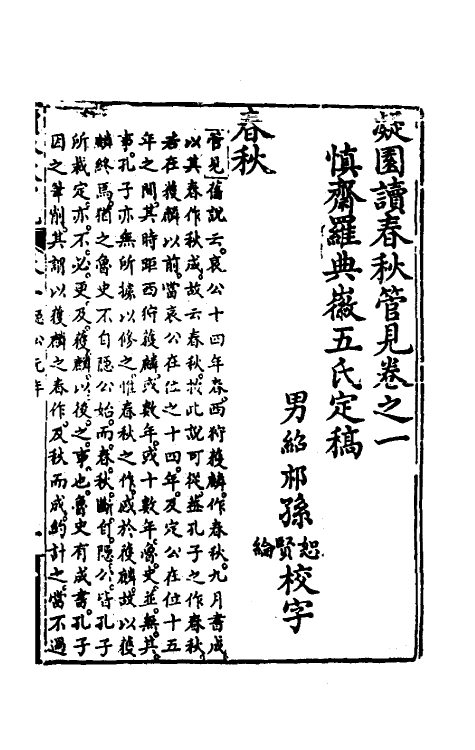 凝園讀春秋管見卷之一
慎齋羅典徽五氏定稿
男紹祁孫恕賢綸校字
春秋
管見舊說云哀公十四年春西狩獲麟作春秋九月書成
以其春作秋成故云春秋按此說可從蓋孔子之作春秋
若在獲麟以前當哀公在位之十四年及定公在位十五
年之間其時距西狩獲麟或數年或十數年魯史並無其
事孔子亦無所據以修之惟春秋之作感於獲麟故以獲
麟終焉猶之魯史不自隱公始而春秋斷自隱公皆孔子
所裁定亦不必更及獲麟以後之事也魯史有成書孔子
因之筆削其謂以獲麟之春作及秋而成約計之當不過
隱公元年